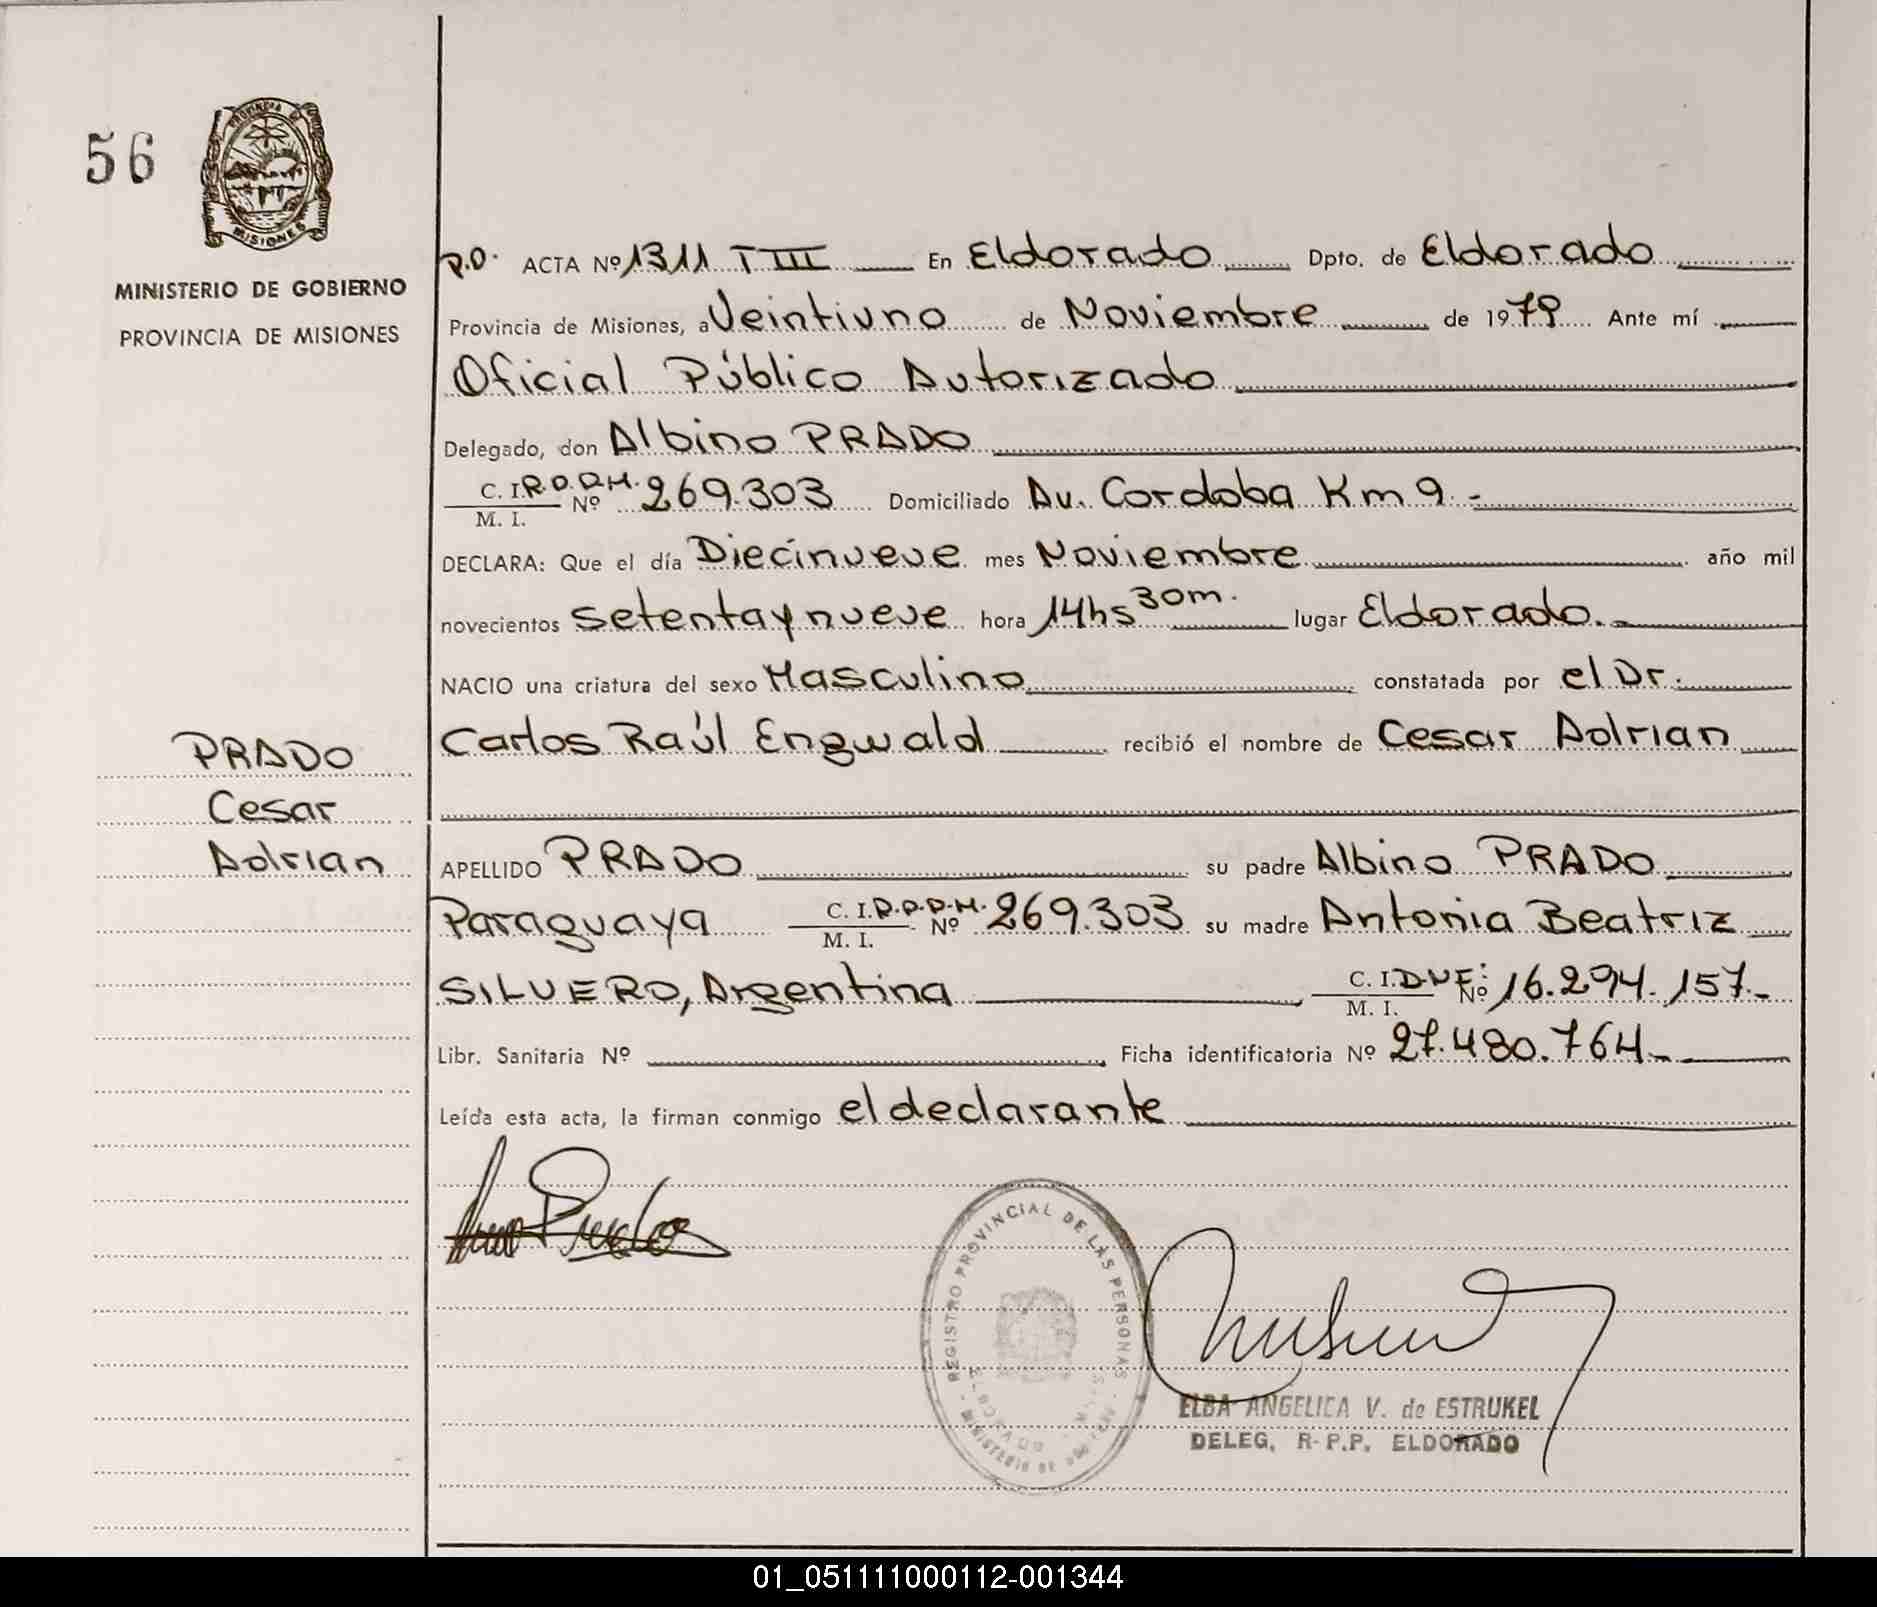 56
PROVINCIA DE
MISIONES
MINISTERIO DE GOBIERNO
PROVINCIA DE MISIONES
P.D. ACTA Nº 1311 T III En Eldorado Dpto. de Eldorado
Provincia de Misiones, a Veintiuno de Noviembre de 1979 Ante mí
Oficial Público Autorizado
Delegado, don Albino PRADO
C. I. M. I. Nº 269.303 Domiciliado Av. Cordoba Km 9.-
DECLARA: Que el día Diecinueve mes Noviembre año mil
novecientos setentaynueve hora 14hs 30m. lugar Eldorado.-
NACIO una criatura del sexo Masculino constatada por el Dr.
Carlos Raúl Engwald recibió el nombre de Cesar Adrian
PRADO
Cesar
Adrian
APELLIDO PRADO su padre Albino PRADO
Paraguaya C. I. M. I. Nº 269.303 su madre Antonia Beatriz
SILVERO, Argentina C. I. M. I. Nº 16.294.157.-
Libr. Sanitaria Nº Ficha identificatoria Nº 27.480.764.-
Leída esta acta, la firman conmigo el declarante
REGISTRO PROVINCIAL DE LAS PERSONAS
ELDORADO
MINISTERIO DE
ELBA ANGELICA V. de ESTRUKEL
DELEG. R-P.P. ELDORADO
01_051111000112-001344